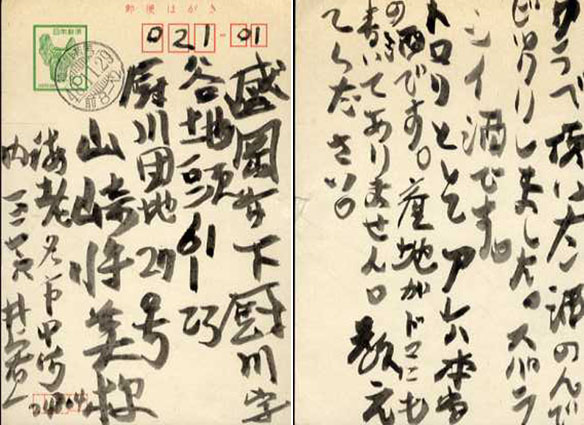 郵便はがき
日本郵便
021-01
盛岡市下厨川字
谷地頭61-
厨川団地27号
山崎将英様
海老名市中河
内 井上有一
ゆうべ頂いた酒のんで
ビックリしました。スバラ
シイ酒です。
トロリとして アレハ本当
の酒です。産地がドコニも
書いてありません。教え
てください。